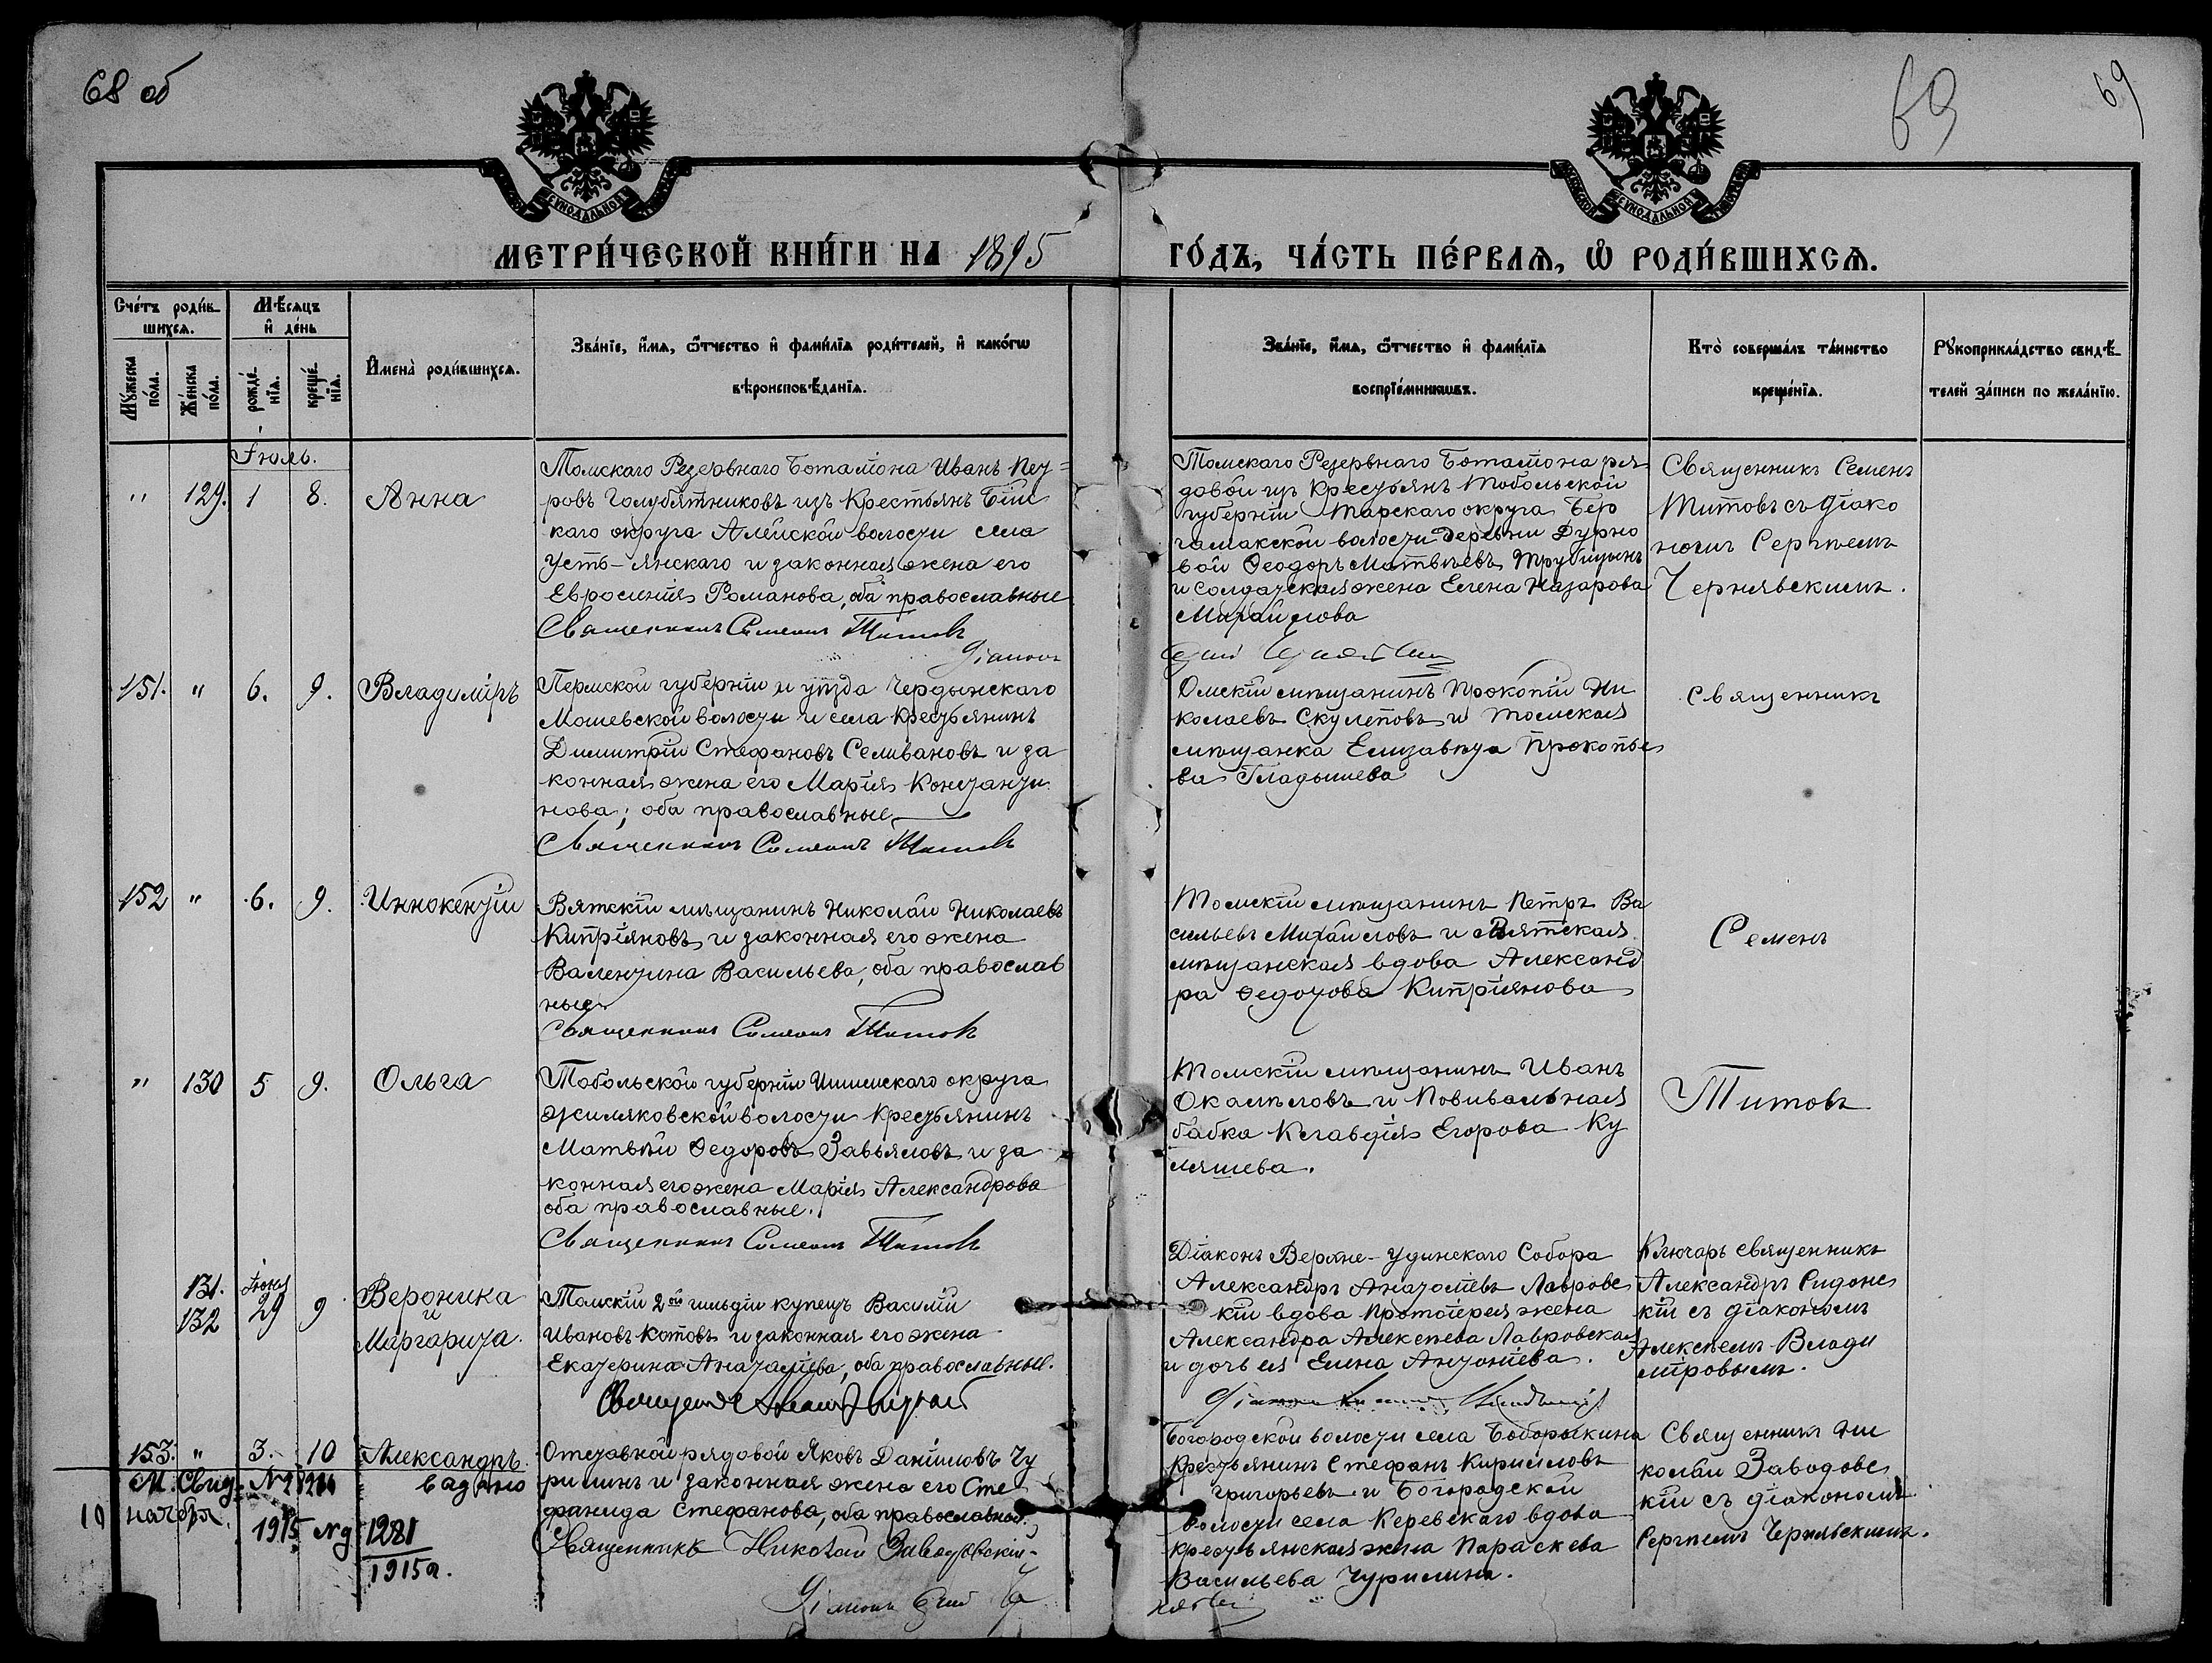 68 об
69
69
МЕТРИ́ЧЕСКОЙ КНИ́ГИ НА 1895
ГО́ДЪ, ЧА́СТЬ ПЕ́РВАѦ, Ѡ҆ РОДИ́ВШИХСѦ.
Сче́тъ роди́в-
шихсѧ.
Мѣ́сѧцъ
и҆ де́нь
Мꙋ́жеска
по́ла.
Же́нска
по́ла.
рожде́-
нїѧ.
креще́-
нїѧ.
И҆мена̀ роди́вшихсѧ.
Зва́нїе, и҆́мѧ, ѻ҆́тчество и҆ фами́лїѧ роди́телей, и҆ како́гѡ
вѣроисповѣ́данїѧ.
Зва́нїе, и҆́мѧ, ѻ҆́тчество и҆ фами́лїѧ
воспрїе́мникѡвъ.
Кто̀ соверша́лъ та́инство
креще́нїѧ.
Рꙋкоприкла́дство свидѣ́-
телей за́писи по жела́нїю.
Іюль.
" 129. 1 8. Анна
Томскаго Резервнаго Баталіона Иванъ Пет=
ровъ Голубятниковъ изъ крестьянъ Бій
каго округа Алейской волости села
Усть-Янскаго и законная жена его
Евросинія Романова, оба православные
Священникъ Симеонъ Титовъ
Діаконъ
Томскаго Резервнаго Баталіона ря
довой изъ крестьянъ Тобольской
губерніи Тарскаго округа Бер
гамакской волости деревни Дурно
вой Ѳеодоръ Матвѣевъ Трубицынъ
и солдатская жена Елена Назарова
Михайлова
Священникъ Семенъ
Титовъ съ діако
номъ Сергѣемъ
Чернявскимъ.
151. " 6. 9. Владиміръ
Пермской губерніи и уѣзда Чердынскаго
Мошевской волости и села крестьянинъ
Димитрій Стефановъ Селивановъ и за
конная жена его Марія Константи
нова; оба православные
Священникъ Симеонъ Титовъ
Омскій мѣщанинъ Прокопій Ни
колаевъ Скулеповъ и томская
мѣщанка Елизавета Прокопье
ва Гладышева
Священникъ
152 " 6. 9. Иннокентій
Вятскій мѣщанинъ Николай Николаевъ
Кипріяновъ и законная его жена
Валентина Васильева, оба православ
ные
Священникъ Симеонъ Титовъ
Томскій мѣщанинъ Петръ Ва
сильевъ Михайловъ и Вятская
мѣщанская вдова Александ
ра Ѳедотова Кипріянова
Семенъ
" 130 5 9. Ольга
Тобольской губерніи Ишимскаго округа
Жиляковской волости крестьянинъ
Матвѣй Ѳедоровъ Завьяловъ и за
конная его жена Марія Александрова
оба православные.
Священникъ Симеонъ Титовъ
Томскій мѣщанинъ Иванъ
Окаемовъ и Повивальная
бабка Клавдія Егорова Ку
ляшева.
Титовъ
131.
132
Іюня
29 9 Вероника
и
Маргарита.
Томскій 2ой гильдіи купецъ Василій
Ивановъ Котовъ и законная его жена
Екатерина Анатоліева, оба православные.
Діаконъ Верхне-Удинскаго Собора
Александръ Анатоліевъ Лавровс
кій вдова Протоіерея жена
Александра Алексѣева Лавровская
и дочь ея Елена Антоніева.
Ключарь священникъ
Александръ Сидонс
кій съ діакономъ
Алексѣемъ Влади
міровымъ.
153. " 3. 10 Александръ.
Отставной рядовой Яковъ Даніиловъ Чу
рилинъ и законная жена его Сте
фанида Стефанова, оба православной.
Священникъ Николай Заводовскій
Діаконъ
Богородской волости села Боборыкина
крестьянинъ Стефанъ Кирилловъ
Григорьевъ и Богородской
волости села Керевскаго вдова
крестьянская жена Параскева
Васильева Чурилина.
Священникъ Ни
колай Заводовс
кій съ діакономъ
Сергѣемъ Чернявскимъ.
М. Свид. № выдано
19 ноября
1915 № д 1281
1915 г.